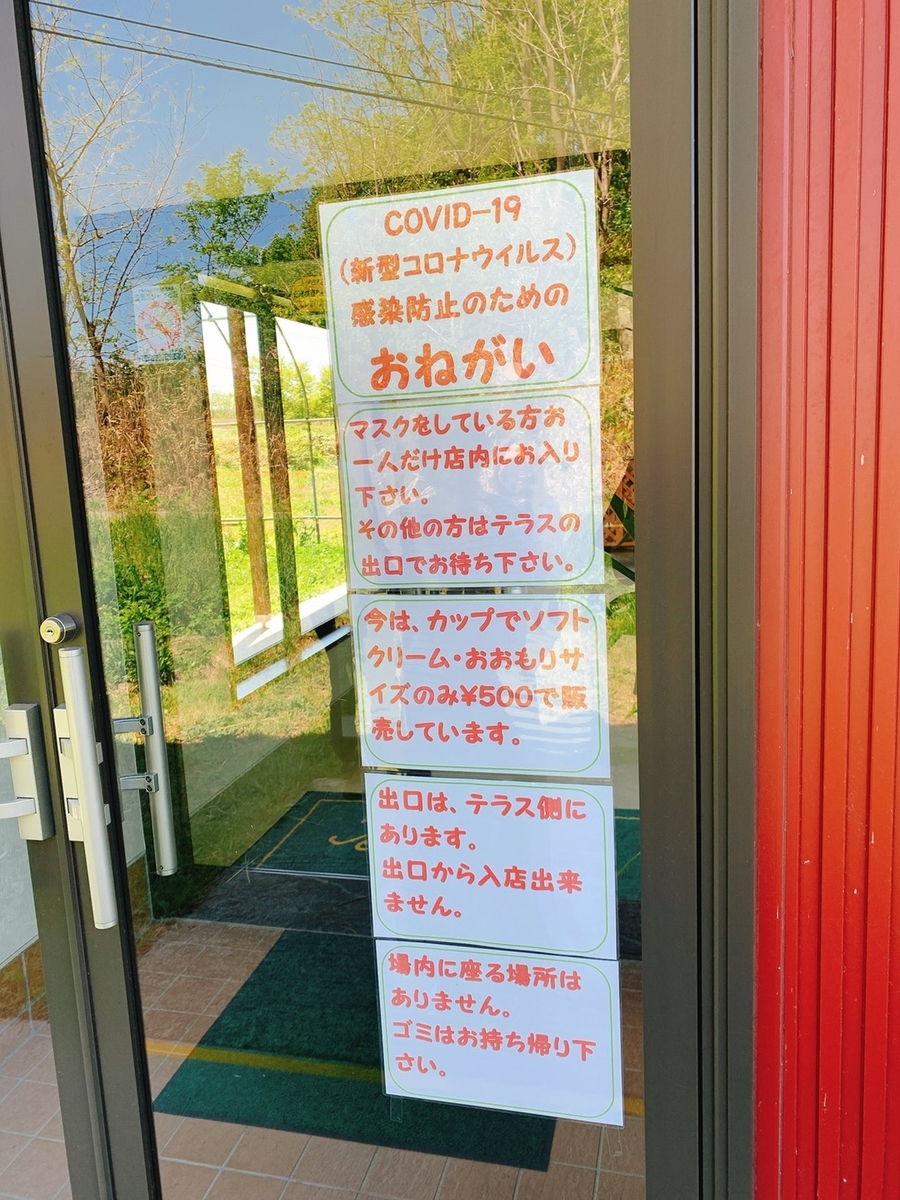 COVID-19
(新型コロナウイルス)
感染防止のための
おねがい
マスクをしている方お
一人だけ店内にお入り
下さい。
その他の方はテラスの
出口でお待ち下さい。
今は、カップでソフト
クリーム・おおもりサ
イズのみ¥500で販
売しています。
出口は、テラス側に
あります。
出口から入店出来
ません。
場内に座る場所は
ありません。
ゴミはお持ち帰り下
さい。